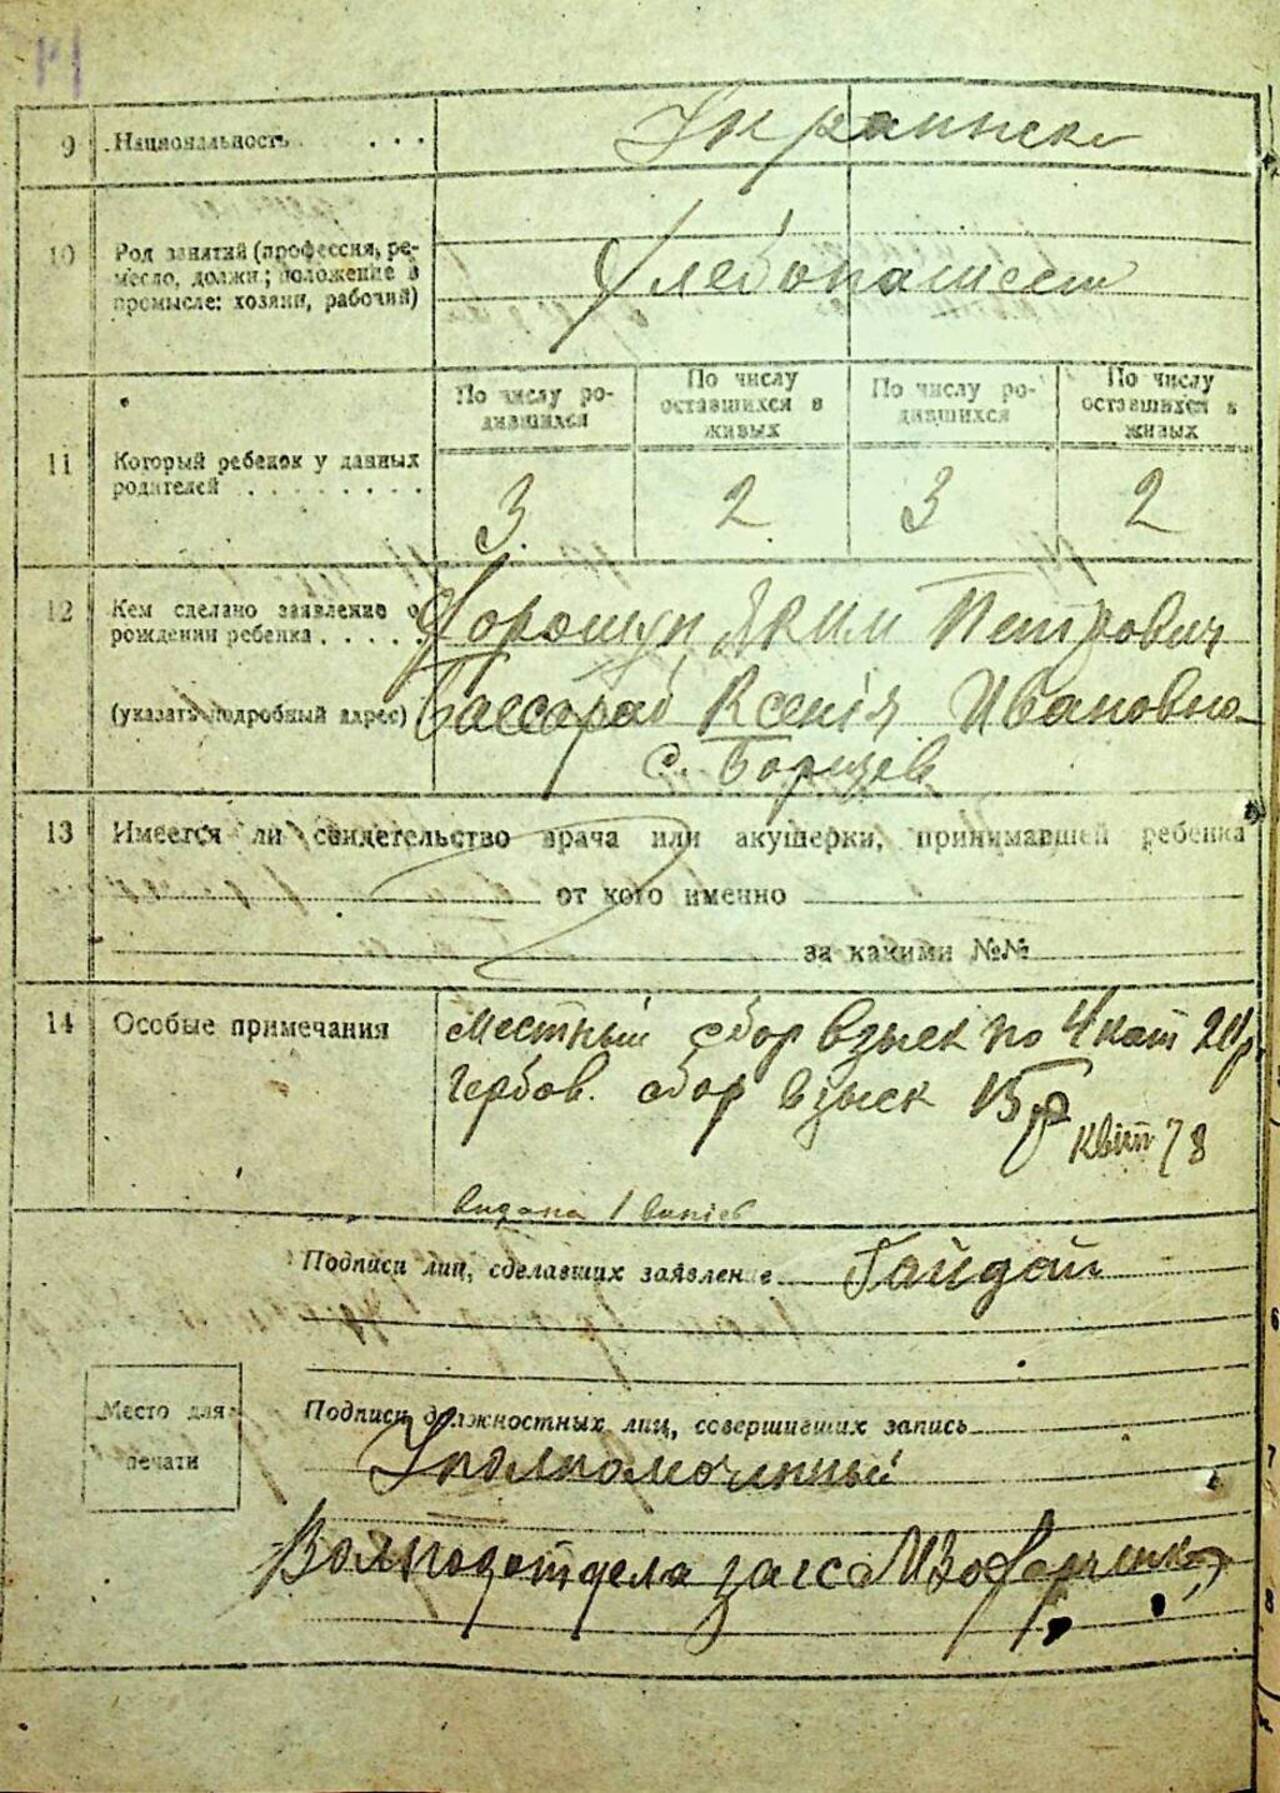 9 Национальность . . . Украинск
10 Род занятий (профессия, ре-
месло, должн.; положение в
промысле: хозяин, рабочий)
Хлебопашест
По числу ро-
дившихся
По числу
оставшихся в
живых
По числу ро-
дившихся
По числу
оставшихся в
живых
11 Который ребенок у данных
родителей . . . . . . . .
3 2 3 2
12 Кем сделано заявление о
рождении ребенка . . . . .
Яким Петрович
(указать подробный адрес)
Ксенія Ивановна
с. Борщев
13 Имеется ли свидетельство врача или акушерки, принимавшей ребенка
от кого именно
за какими №№
14 Особые примечания
Местный сбор взыск по 4 кат
гербов. сбор взыск 15 р
квит 78
видана 1
Подписи лиц, сделавших заявление Гайдай
Место для
печати
Подписи должностных лиц, совершивших запись
Уполномоченный
Волподотдела загса